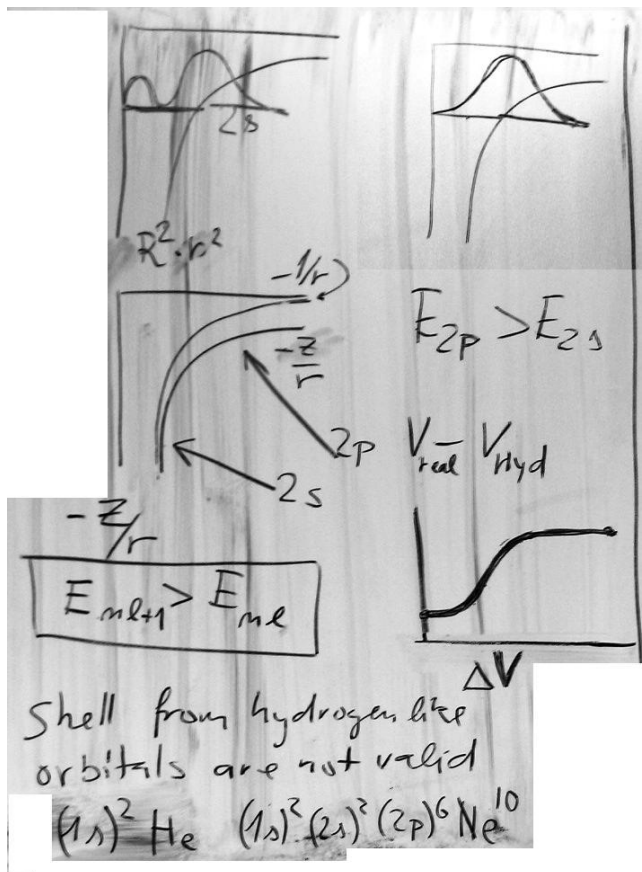 2s
R²·r²
-1/r
-Z/r
2p
2s
-Z/r
E₂ₚ > E₂ₛ
V_real - V_Hyd
ΔV
E_nl+1 > E_nl
Shell from hydrogen like
orbitals are not valid
(1s)² He (1s)² (2s)² (2p)⁶ Ne¹⁰